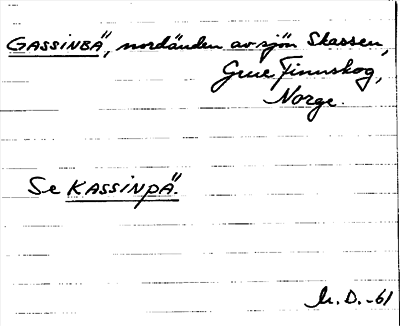 GASSINBÄ, nordänden av sjön Skassen,
Grue Finnskog,
Norge.
Se KASSINPÄ.
M.D.-61